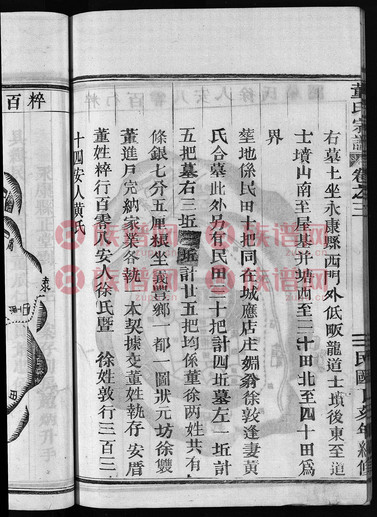 董氏宗譜 卷之三
民國丁亥年續修
右墓上坐永康縣西門外低畈龍道士墳後東至道
士墳山南至屋基并塘西至二十田北至四十田為
界
塋地係民田十把同在城應店庄媚翁徐敦逢妻黄
氏合墓此外另有民田三十把計四坵墓左一坵計
五把墓右三坵計廿五把均係董徐兩姓共有
條銀七分五厘根坐義豐鄉一都一圖狀元坊徐雙
董進戶完納家業各執一本契據交董姓執存安厝
董姓粹行百零八安人徐氏暨 徐姓敦行三百三
十四安人黄氏
粹百
族谱网